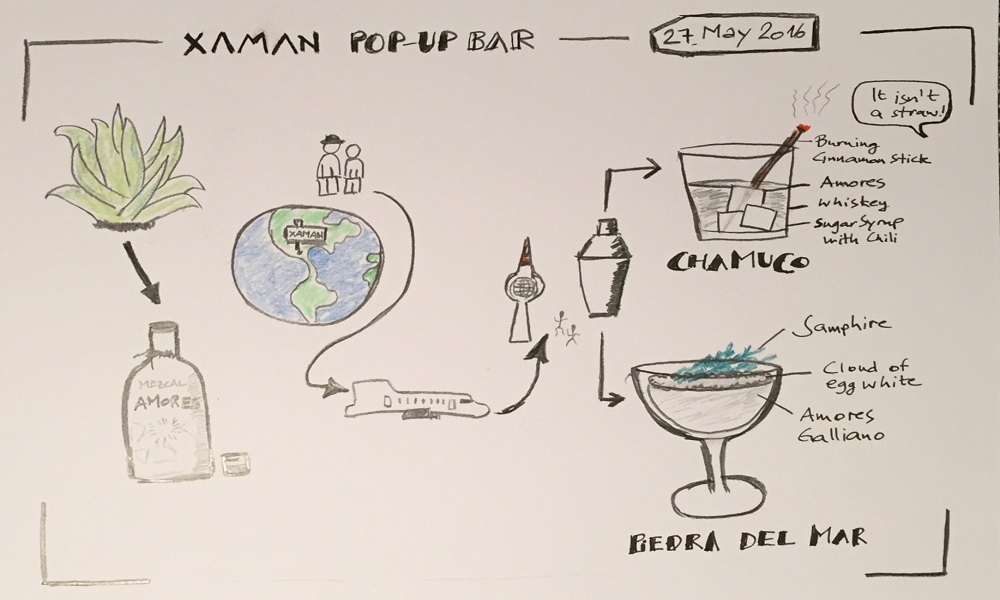 XAMAN POP-UP BAR
27. May 2016
It isn't
a straw!
Burning
Cinnamon Stick
Amores
whiskey
Sugar Syrup
with Chili
CHAMUCO
XAMAN
MEZCAL
AMORES
Samphire
Cloud of
egg white
Amores
Galliano
PIEDRA DEL MAR